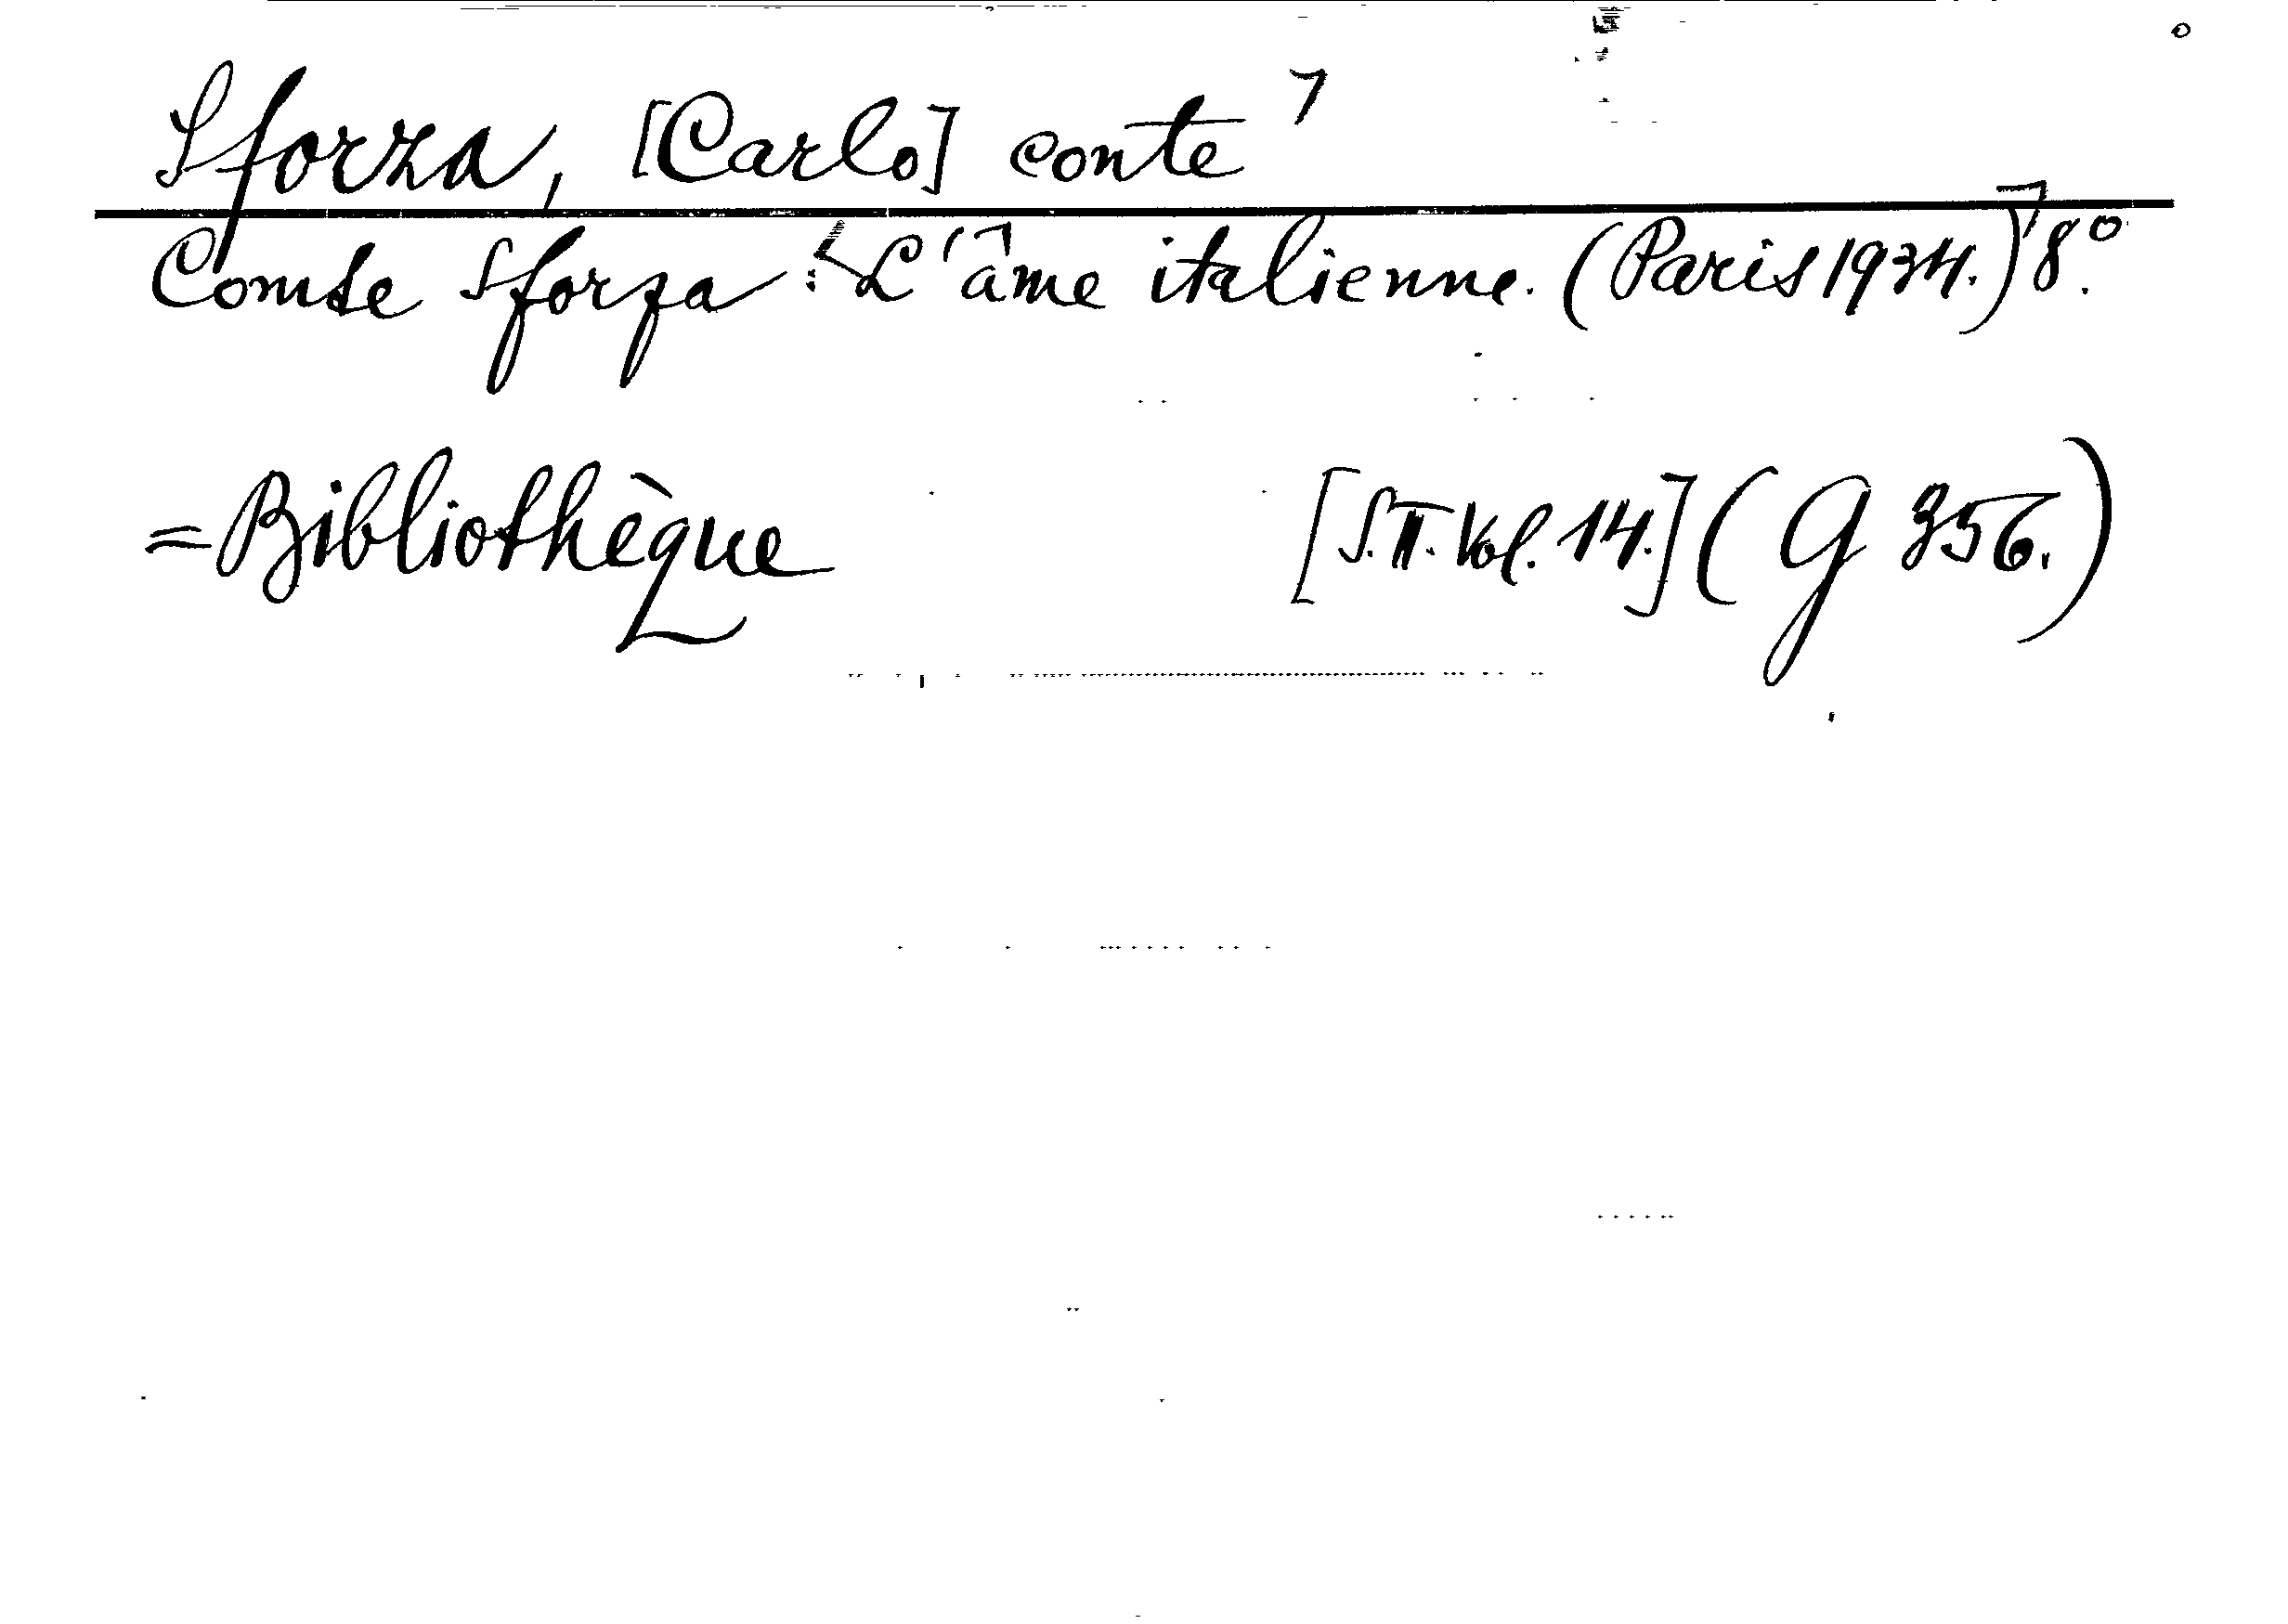 Sforza, [Carlo] conte
Comte Sforza: L'âme italienne. (Paris 1934.) 8°.
=Bibliothèque [S.II. Vol. 14.] (G 356.)